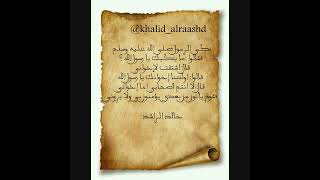 @khalid_alraashd
بكى الرسول صلى الله عليه وسلم
فقالوا ما يبكيك يا رسول الله؟
قال اشتقت لإخواني
قالوا أولسنا إخوانك يا رسول الله
قال لا أنتم أصحابي أما إخواني
فقوم يأتون من بعدي يؤمنون بي ولا يروني
خالد الراشد